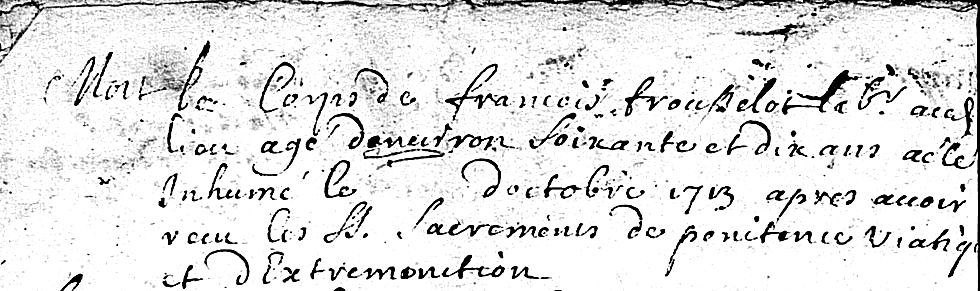 Mort le Corps de francois trousselot labr aud
lieu agé denviron soixante et dix ans a été
Inhumé le doctobre 1713 apres avoir
recu les SS. Sacrements de penitence viatiq
et dExtremonction